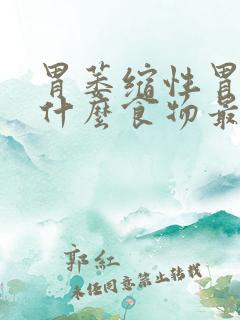 胃萎缩性胃
什麼食物最
郭红
未经同意禁止转载